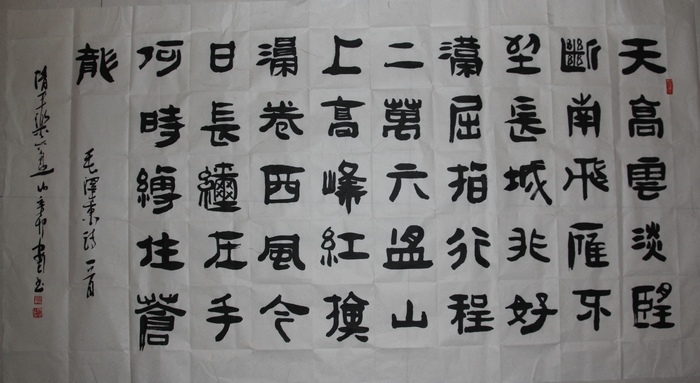 天高雲淡望
斷南飛雁不
到長城非好
漢屈指行程
二萬六盤山
上高峰紅旗
漫卷西風今
日長纓在手
何時縛住蒼
龍
毛澤東詩一首
清平樂六盤山辛卯書